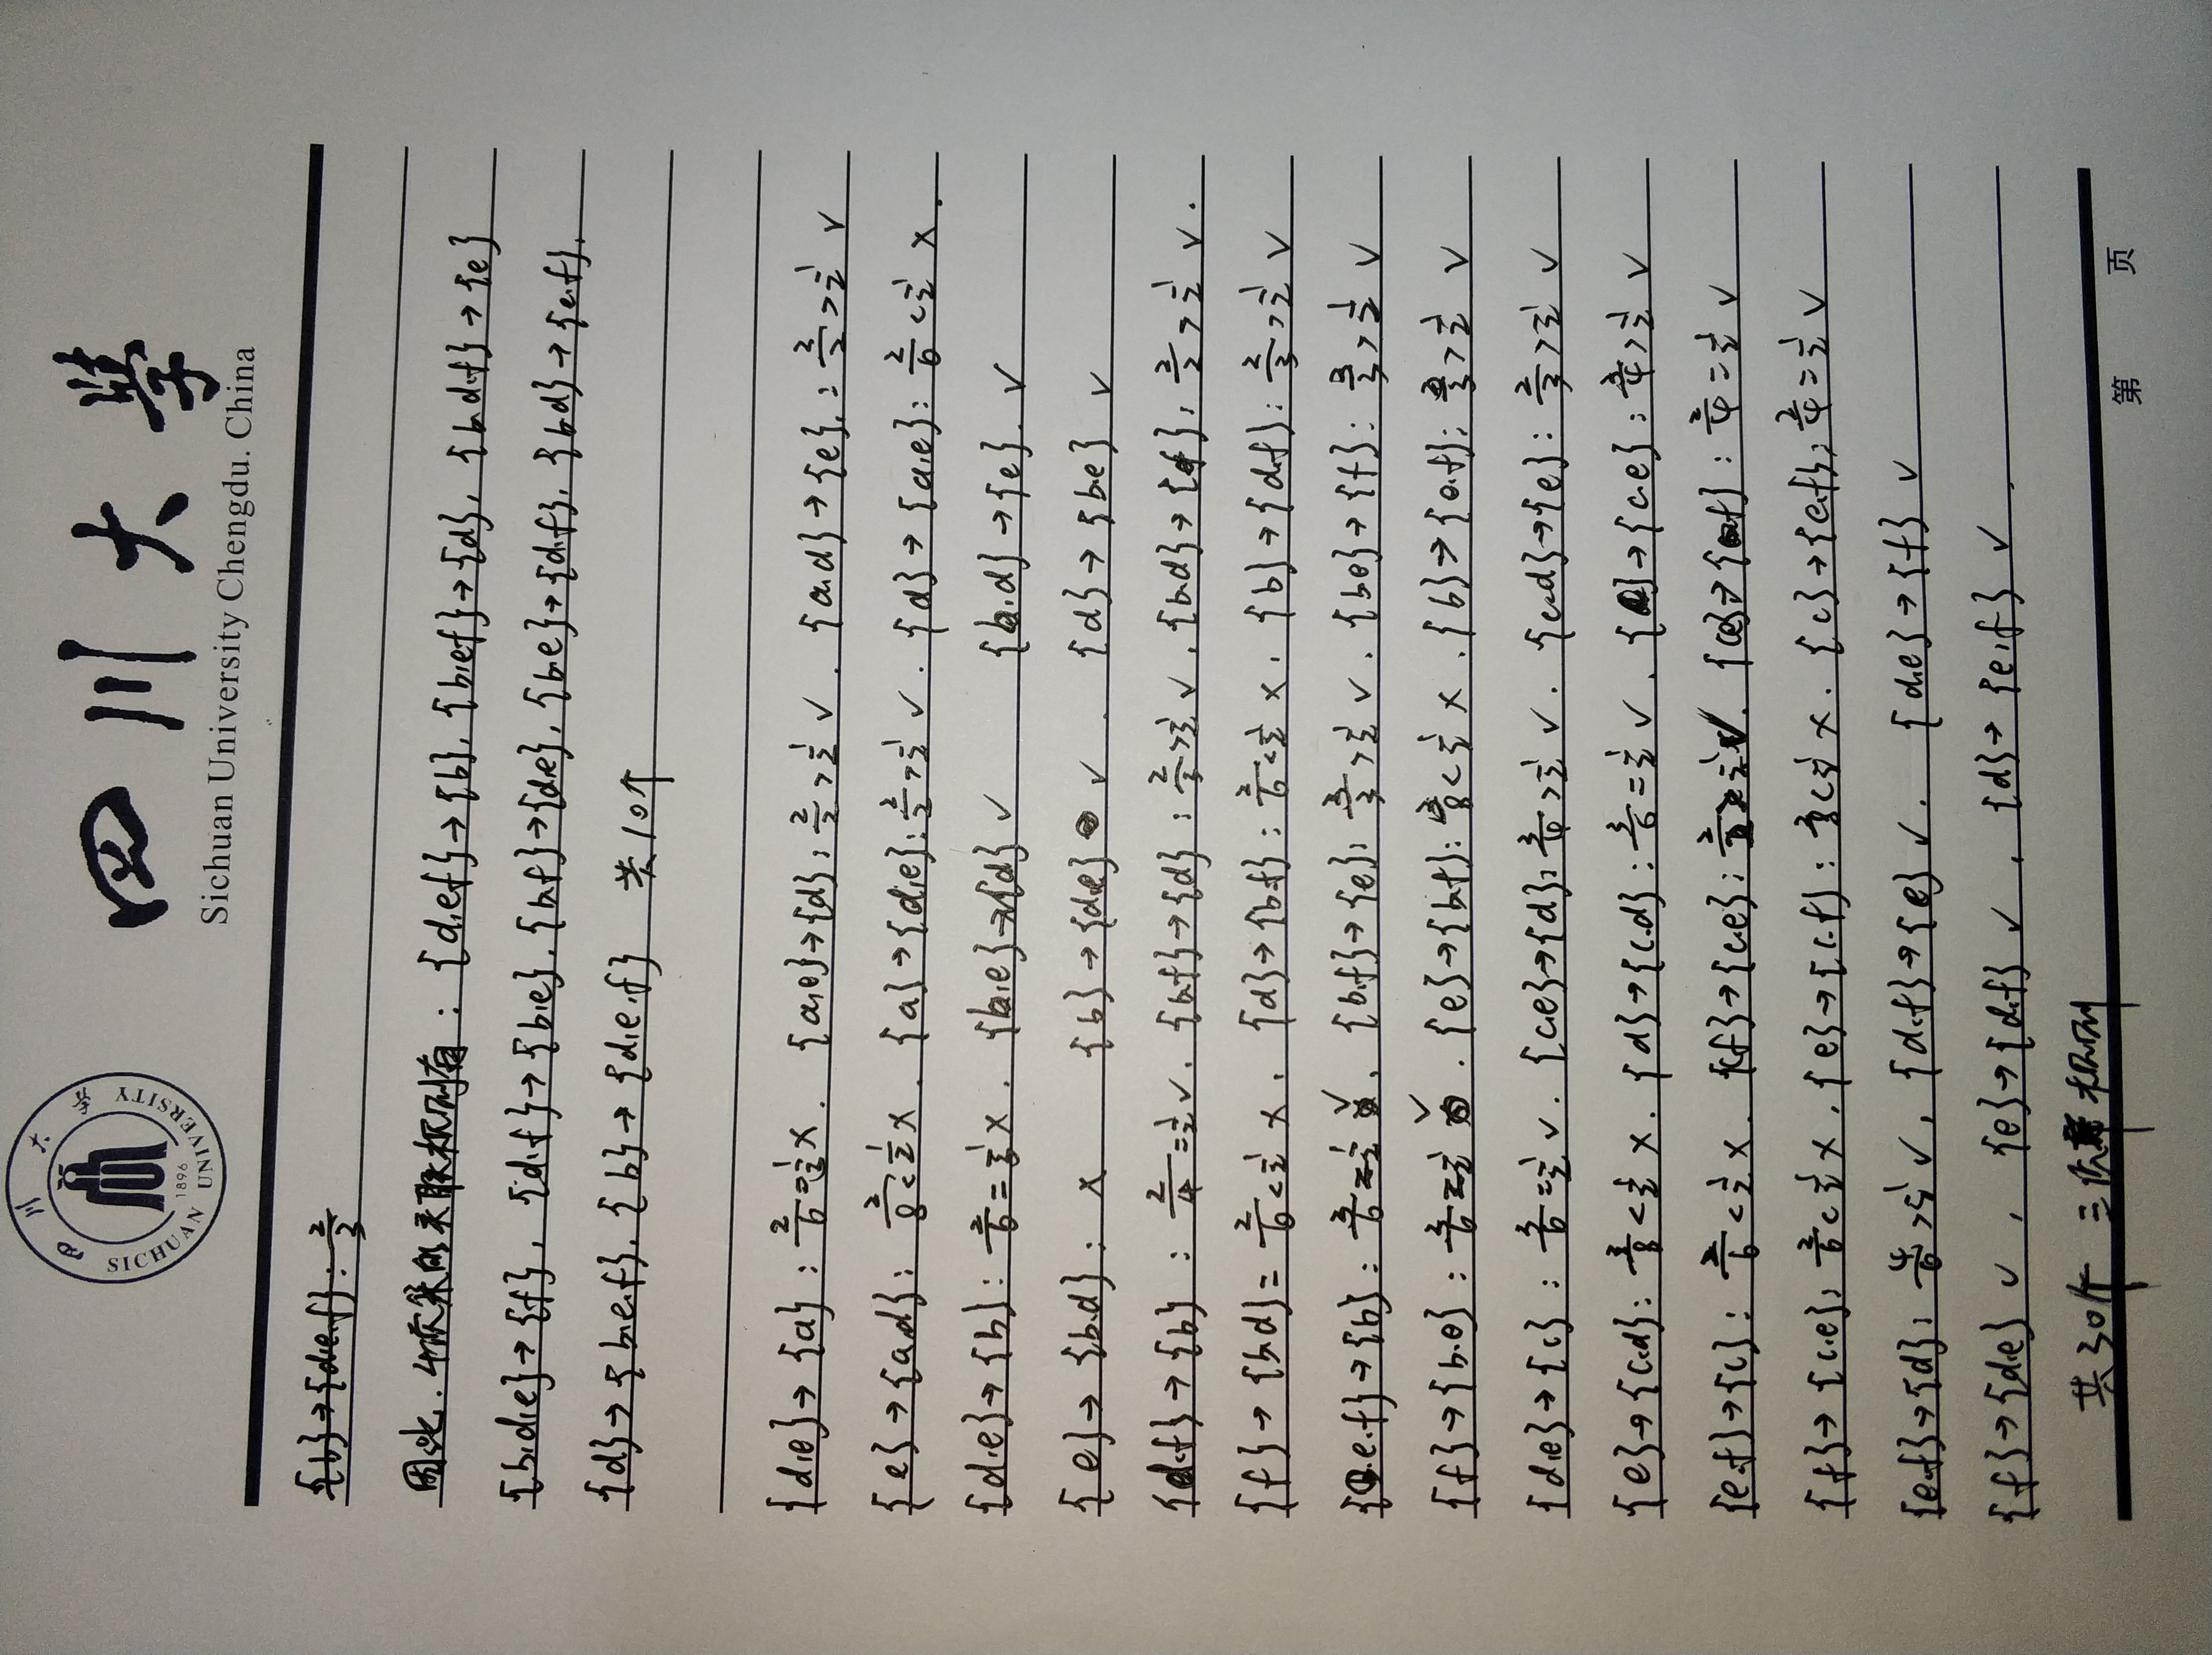 四川大學
Sichuan University Chengdu. China
四川大学
SICHUAN UNIVERSITY
1896
{b}→{d.e.f}: 2/3
因此. 4项集的关联规则有: {d.e.f}→{b}, {b.e.f}→{d}, {b.d.f}→{e}
{b.d.e}→{f}, {d.f}→{b.e}, {b.f}→{d.e}, {b.e}→{d.f}, {b.d}→{e.f},
{d}→{b.e.f}, {b}→{d.e.f} 共10个
{d.e}→{a}: 2/6 <1/2 ×. {a.e}→{d}: 2/2>1/2 ∨. {a.d}→{e}: 2/2>1/2 ∨
{e}→{a.d}: 2/8<1/2 ×. {a}→{d.e}: 2/2>1/2 ∨. {d}→{a.e}: 2/6<1/2 ×.
{d.e}→{b}: 3/6=1/2 ×. {b.e}→{d} ∨ {b.d}→{e}. ∨
{e}→{b.d}: × {b}→{d.e} ∨. {d}→{b.e} ∨
{d.f}→{b}: 2/4=1/2 ∨. {b.f}→{d}: 2/3>1/2 ∨. {b.d}→{f}: 2/3>1/2 ∨.
{f}→{b.d}= 2/6<1/2 ×. {d}→{b.f}: 2/6<1/2 ×. {b}→{d.f}: 2/3>1/2 ∨
{e.f}→{b}: 3/6=1/2 ∨. {b.f}→{e}: 3/3>1/2 ∨. {b.e}→{f}: 3/3>1/2 ∨
{f}→{b.e}: 3/6=1/2 ∨. {e}→{b.f}: 3/8<1/2 ×. {b}→{e.f}: 3/3>1/2 ∨
{d.e}→{c}: 3/6=1/2 ∨. {c.e}→{d}: 3/4>1/2 ∨. {c.d}→{e}: 3/3>1/2 ∨
{e}→{c.d}: 3/8<1/2 ×. {d}→{c.d}: 3/6=1/2 ∨. {c}→{c.e}: 3/4>1/2 ∨
{e.f}→{c}: 2/6<1/2 ×. {f}→{c.e}: ∨. {c.e}→{f}: 2/4=1/2 ∨
{f}→{c.e}: 2/6<1/2 ×. {e}→{c.f}: 2/8<1/2 ×. {c}→{e.f}: 2/4=1/2 ∨
{e.f}→{d}: 4/6>1/2 ∨. {d.f}→{e} ∨. {d.e}→{f} ∨
{f}→{d.e} ∨, {e}→{d.f} ∨, {d}→{e.f} ∨
共30个 三依赖规则
第 页